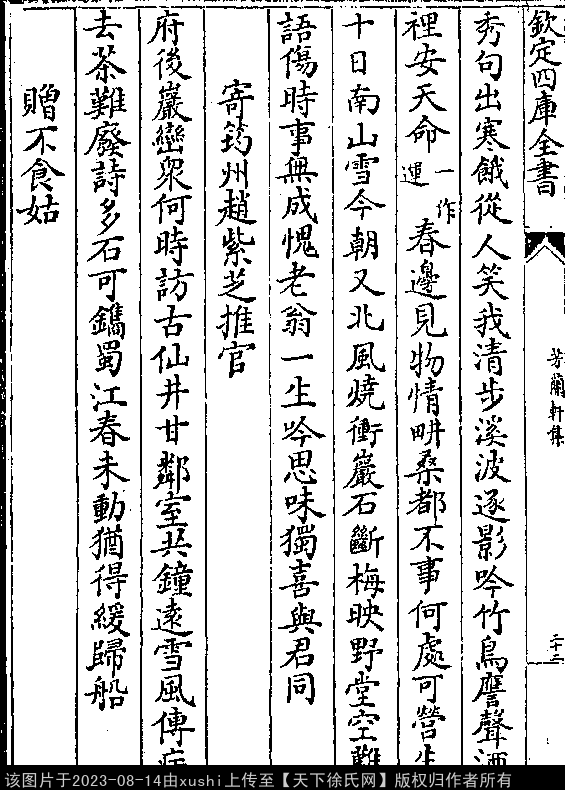 欽定四庫全書
芳蘭軒集
二十二
秀句出寒餓從人笑我清步溪波逐影吟竹鳥譍聲酒
裡安天命一作運春邊見物情畊桑都不事何處可營生
十日南山雪今朝又北風燒衝巖石斷梅映野堂空難
語傷時事無成愧老翁一生吟思味獨喜與君同
寄筠州趙紫芝推官
府後巖巒衆何時訪古仙井甘鄰室共鐘遠雪風傳病
去茶難廢詩多石可鐫蜀江春未動猶得緩歸船
贈不食姑
该图片于2023-08-14由xushi上传至【天下徐氏网】版权归作者所有